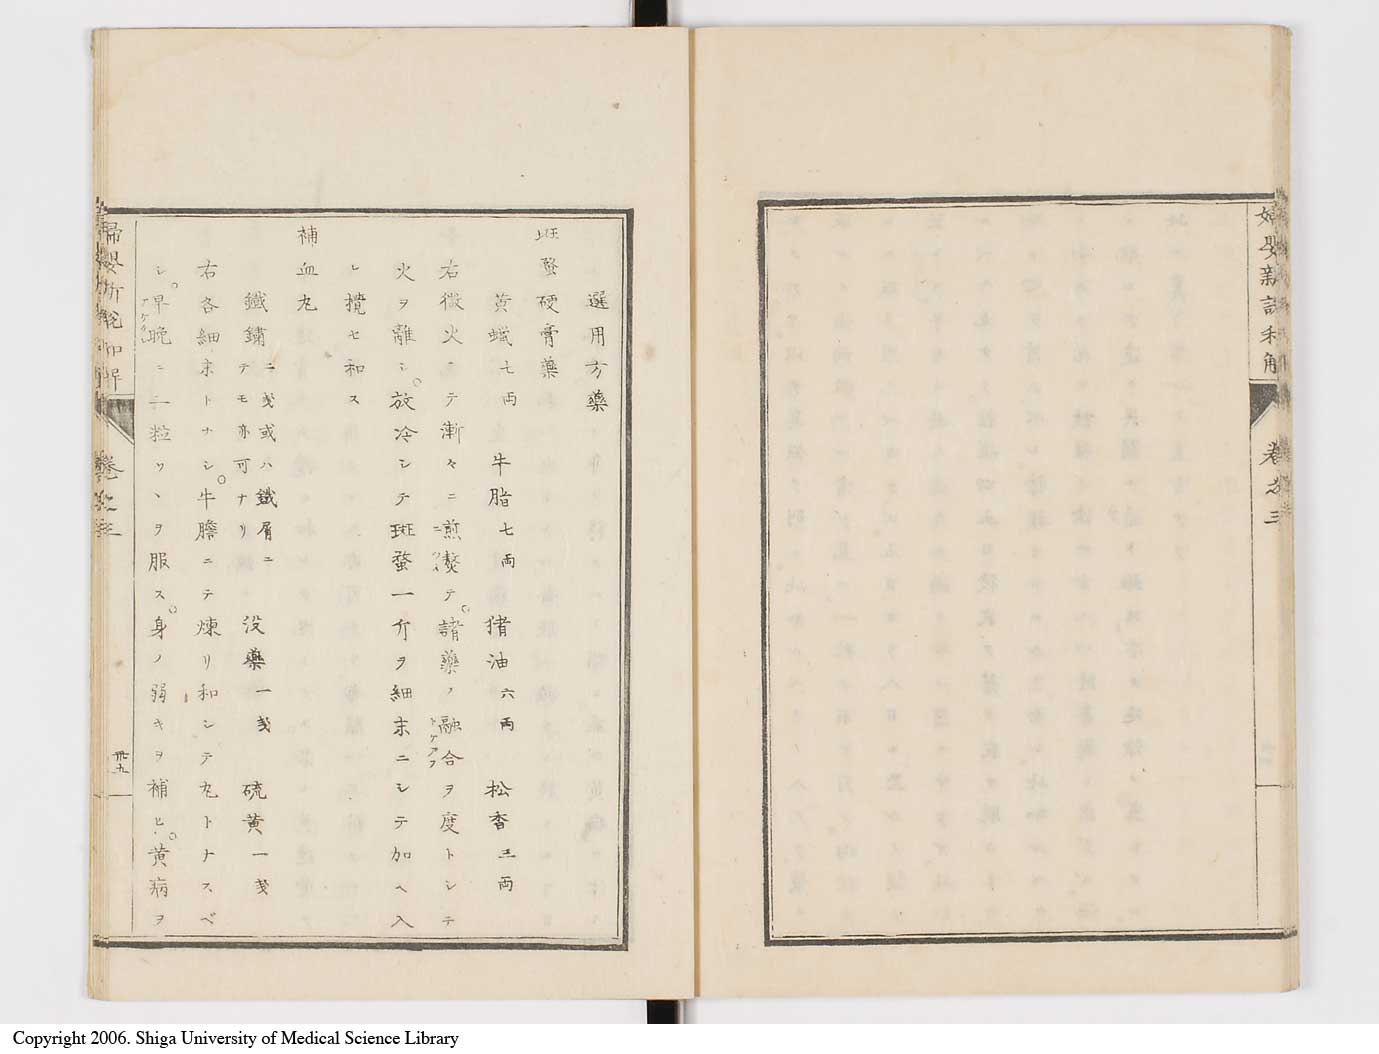 婦嬰新説和解
卷之三
選用方藥
斑蝥硬膏藥
黄蠟七両 牛脂七両 猪油六両 松香三両
右微火ニテ漸々ニ煎熬テ諸藥ノ融合ヲ度トシテ
火ヲ離シ放冷シテ斑蝥一介ヲ細末ニシテ加ヘ入
レ攪セ和ス
補血丸
鐵鏽二戔或ハ鐵屑ニテモ亦可ナリ 没藥一戔 硫黄一戔
右各細末トナシ牛膽ニテ煉リ和シテ丸トナスベ
シ早晩ニ二粒ツヽヲ服ス身ノ弱キヲ補ヒ黄病ヲ
婦嬰新説和解
卷之三
卅九
Copyright 2006. Shiga University of Medical Science Library